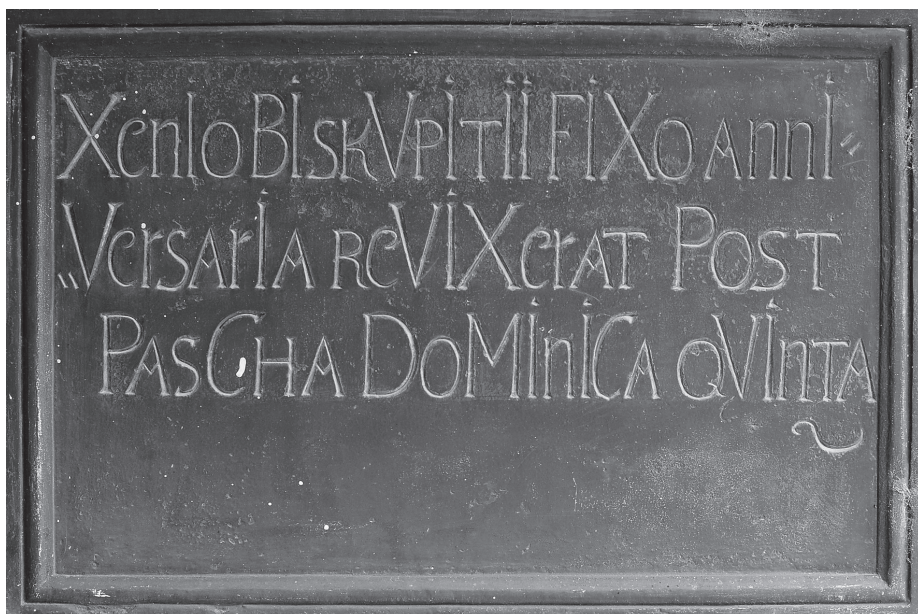 XenIo BIskVpItII FIXo annI〃
„VersarIa reVIXerat Post
PasCha DoMInICa qVInta